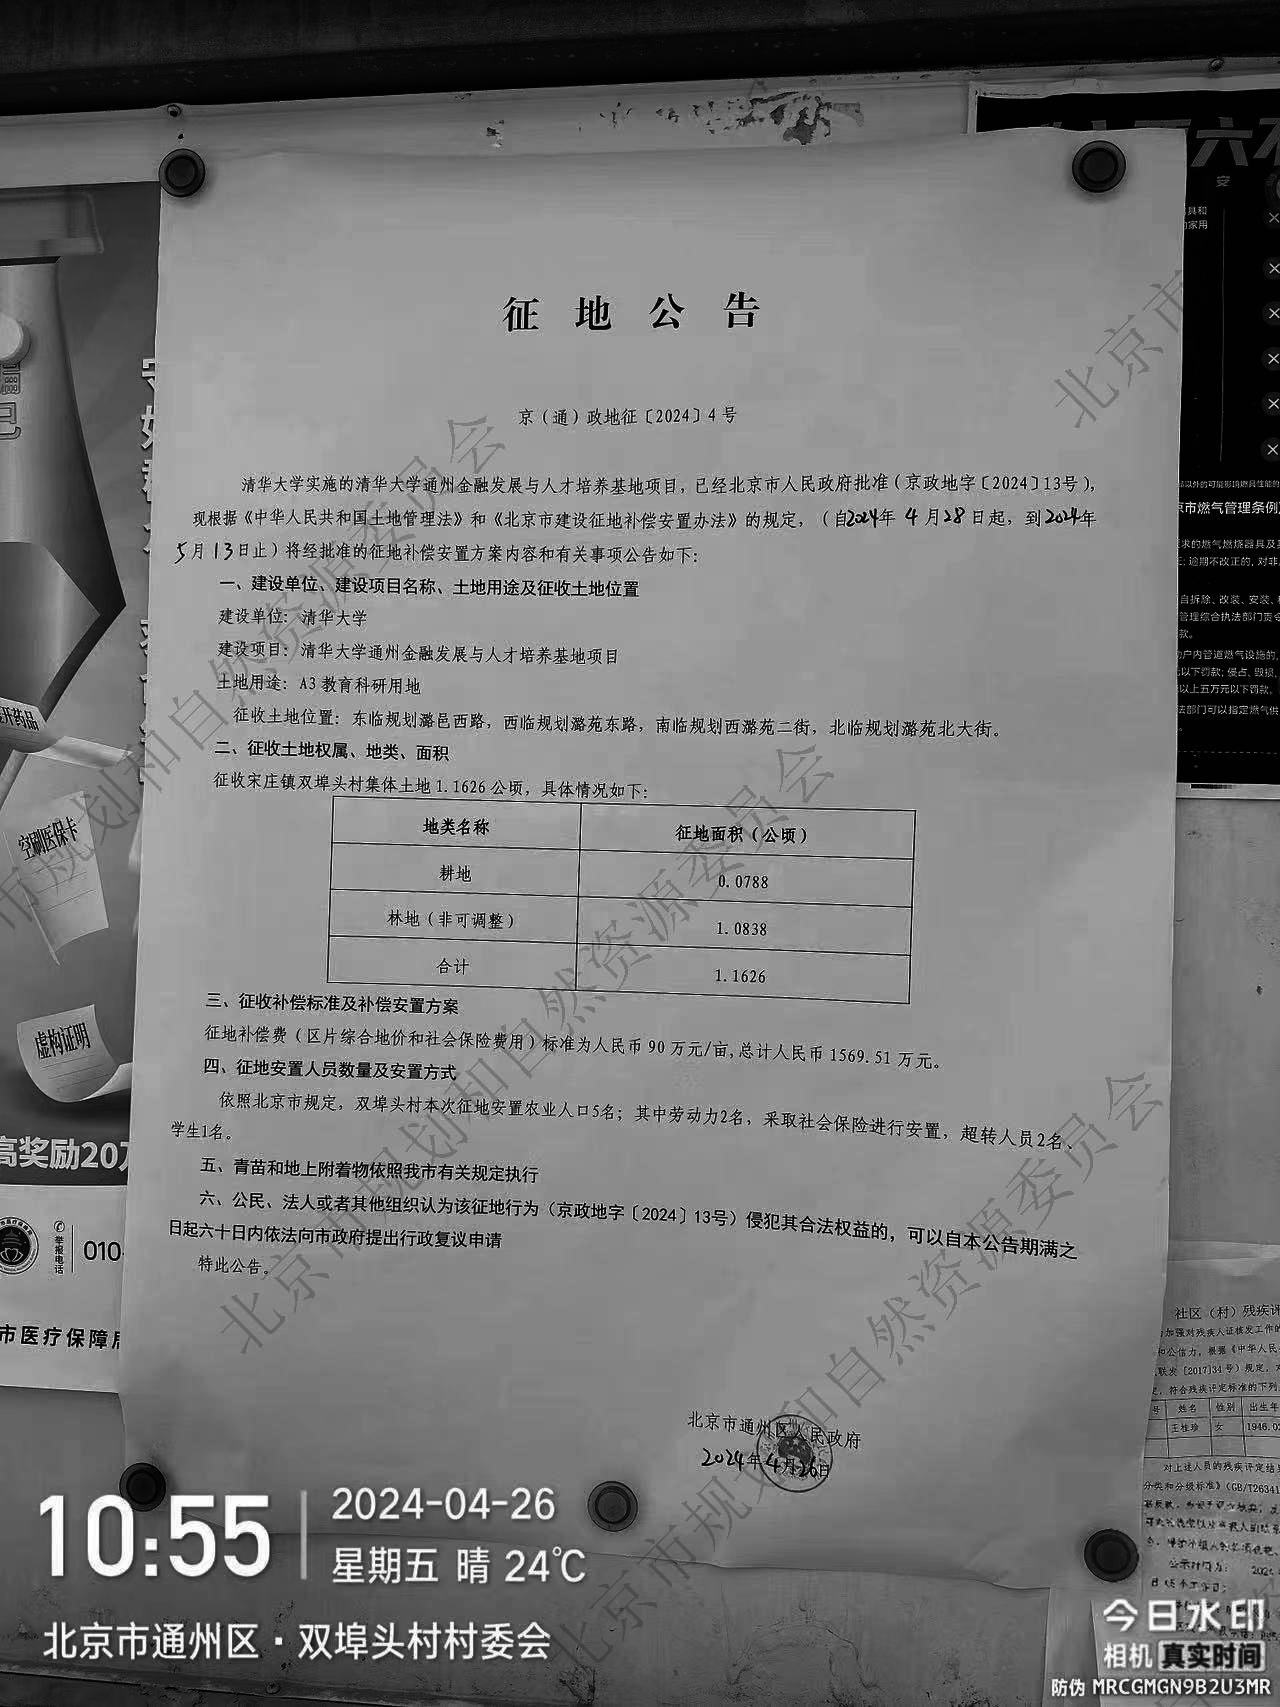 征地公告
京（通）政地征〔2024〕4号
清华大学实施的清华大学通州金融发展与人才培养基地项目，已经北京市人民政府批准（京政地字〔2024〕13号），
现根据《中华人民共和国土地管理法》和《北京市建设征地补偿安置办法》的规定，（自2024年4月28日起，到2024年
5月13日止）将经批准的征地补偿安置方案内容和有关事项公告如下：
一、建设单位、建设项目名称、土地用途及征收土地位置
建设单位：清华大学
建设项目：清华大学通州金融发展与人才培养基地项目
土地用途：A3教育科研用地
征收土地位置：东临规划潞邑西路，西临规划潞苑东路，南临规划西潞苑二街，北临规划潞苑北大街。
二、征收土地权属、地类、面积
征收宋庄镇双埠头村集体土地1.1626公顷，具体情况如下：
地类名称 征地面积（公顷）
耕地 0.0788
林地（非可调整） 1.0838
合计 1.1626
三、征收补偿标准及补偿安置方案
征地补偿费（区片综合地价和社会保险费用）标准为人民币90万元/亩，总计人民币1569.51万元。
四、征地安置人员数量及安置方式
依照北京市规定，双埠头村本次征地安置农业人口5名；其中劳动力2名，采取社会保险进行安置，超转人员2名、
学生1名。
五、青苗和地上附着物依照我市有关规定执行
六、公民、法人或者其他组织认为该征地行为（京政地字〔2024〕13号）侵犯其合法权益的，可以自本公告期满之
日起六十日内依法向市政府提出行政复议申请
特此公告。
北京市通州区人民政府
2024年4月26日
北京市规划和自然资源委员会
北京市规划和自然资源委员会
市规划和自然资源委员会
北京市
空刷医保卡
虚构证明
高奖励20万
举报电话
010-
市医疗保障局
开药品
六不
安
京市燃气管理条例
社区（村）残疾评
姓名 性别 出生年
王桂珍 女 1946.0
10:55
2024-04-26
星期五 晴 24℃
北京市通州区·双埠头村村委会
今日水印
相机 真实时间
防伪 MRCGMGN9B2U3MR